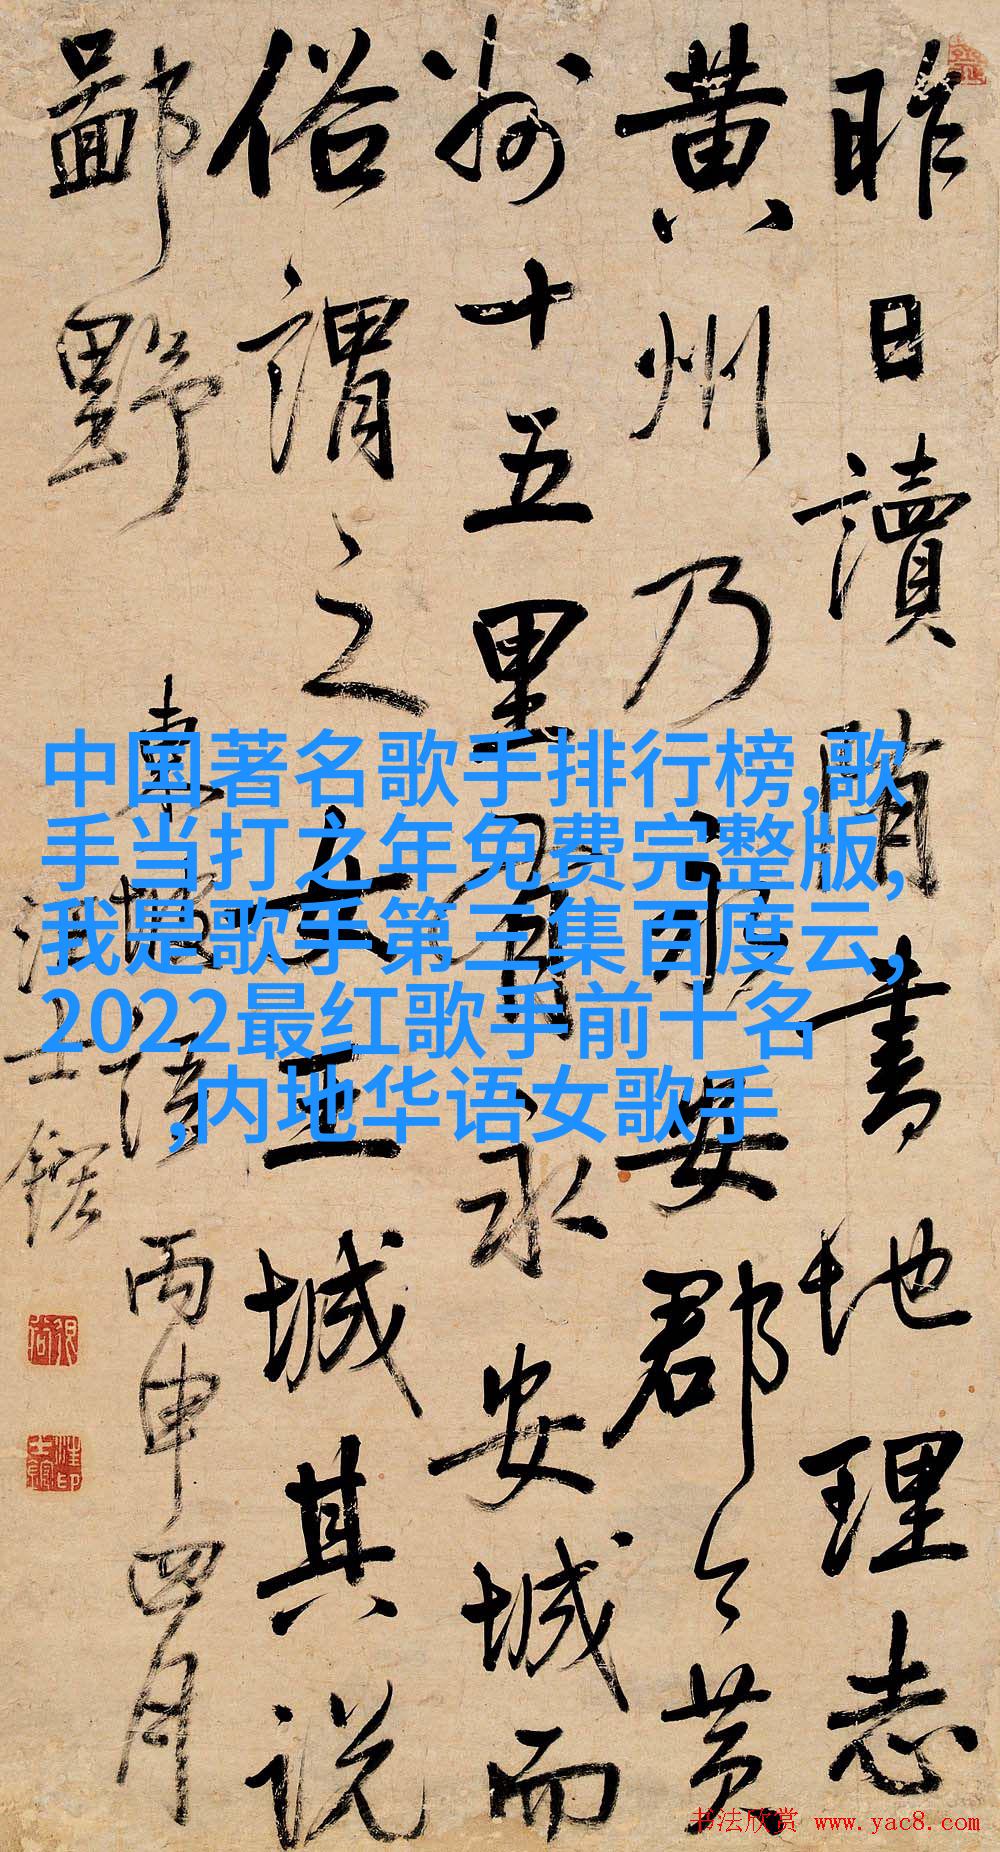 昨日讀隋書地理志
黄州乃永安郡今黄
州十五里有永安城而
俗謂之女王城其説
鄙野
東坡語 丙申四月
汪士鋐
中国著名歌手排行榜,歌
手当打之年免费完整版,
我是歌手第三集百度云,
2022最红歌手前十名
,内地华语女歌手
书法欣赏 www.yac8.com